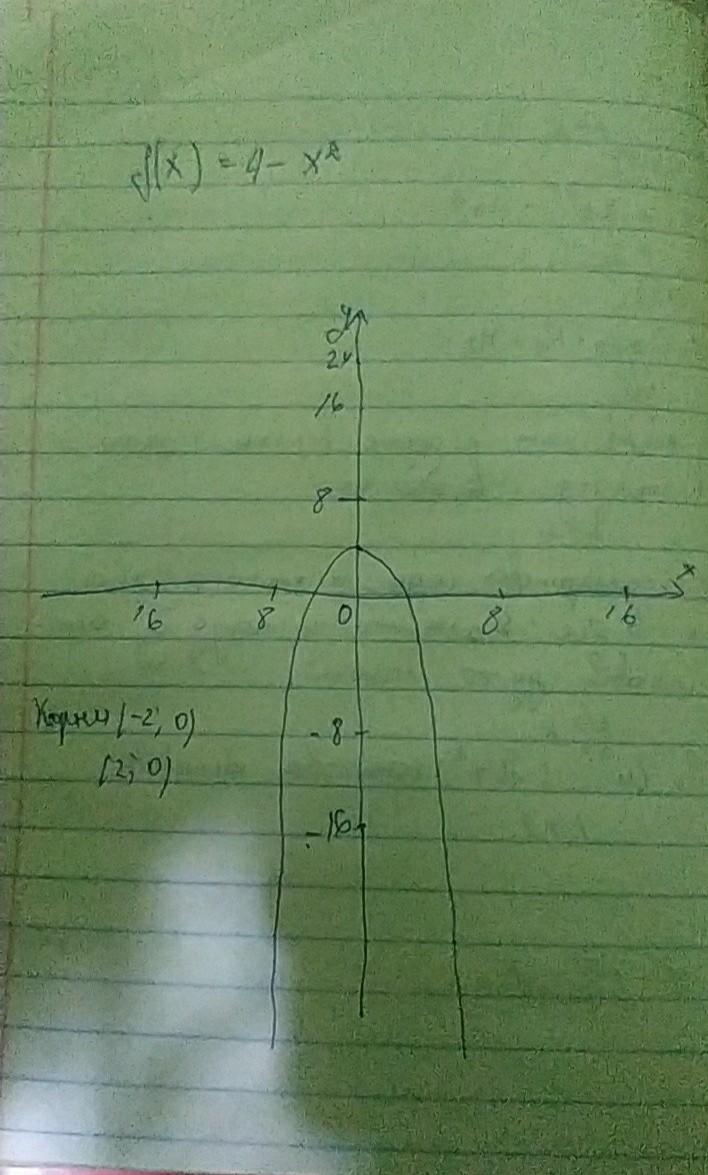 f(x) = 4 - x²
y
24
16
8
x
16 8 0 8 16
Корни (-2; 0)
-8
(2; 0)
-16